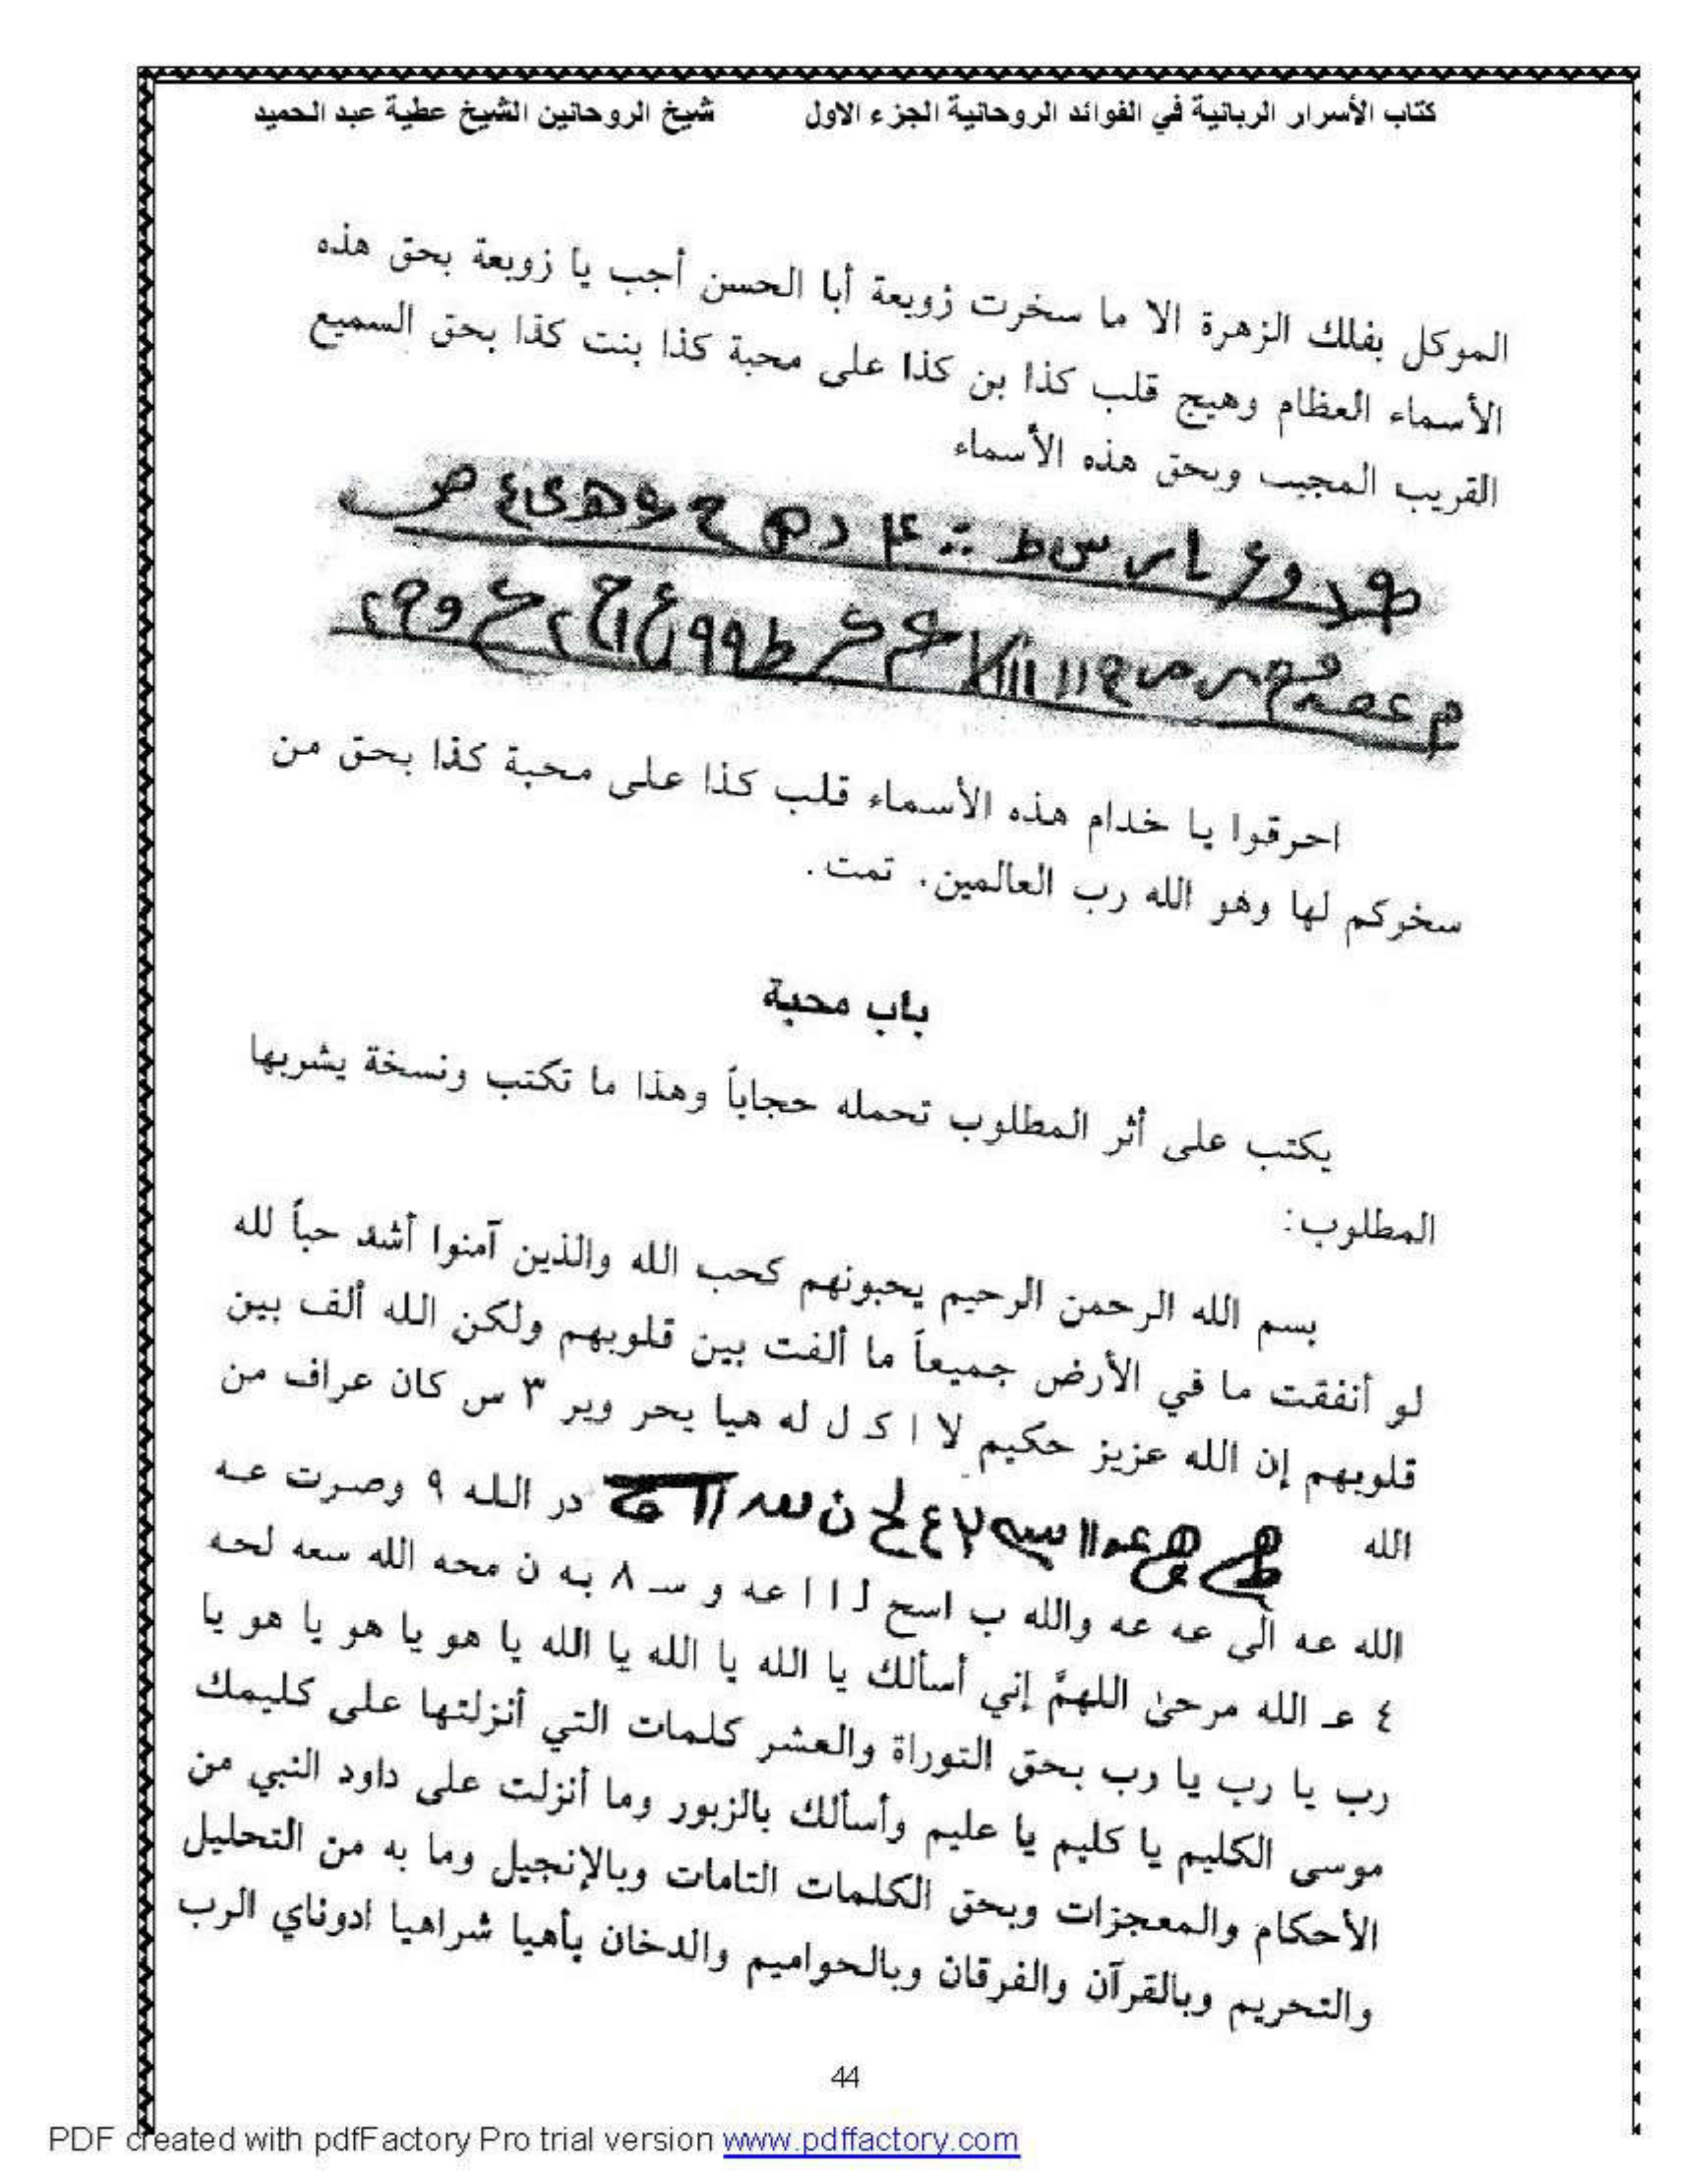 كتاب الأسرار الربانية في الفوائد الروحانية الجزء الاول شيخ الروحانين الشيخ عطية عبد الحميد
الموكل بفلك الزهرة الا ما سخرت زوبعة أبا الحسن أجب يا زوبعة بحق هذه
الأسماء العظام وهيج قلب كذا بن كذا على محبة كذا بنت كذا بحق السميع
القريب المجيب وبحق هذه الأسماء
احرقوا يا خدام هذه الأسماء قلب كذا على محبة كذا بحق من
سخركم لها وهو الله رب العالمين. تمت.
باب محبة
يكتب على أثر المطلوب تحمله حجاباً وهذا ما تكتب ونسخة يشربها
المطلوب:
بسم الله الرحمن الرحيم يحبونهم كحب الله والذين آمنوا أشد حباً لله
لو أنفقت ما في الأرض جميعاً ما ألفت بين قلوبهم ولكن الله ألف بين
قلوبهم إن الله عزيز حكيم لا ا كـ ل له هيا يحر وير ٣ س كان عراف من
الله در الله ٩ وصرت عـه
الله عه الى عه عه والله ب اسح لـ ا ا عه و سـ ٨ به ن محه الله سعه لحه
٤ عـ الله مرحىٰ اللهمَّ إني أسألك يا الله يا الله يا الله يا هو يا هو يا هو يا
رب يا رب يا رب بحق التوراة والعشر كلمات التي أنزلتها على كليمك
موسى الكليم يا كليم يا عليم وأسألك بالزبور وما أنزلت على داود النبي من
الأحكام والمعجزات وبحق الكلمات التامات وبالإنجيل وما به من التحليل
والتحريم وبالقرآن والفرقان وبالحواميم والدخان بأهيا شراهيا ادوناي الرب
44
PDF created with pdfFactory Pro trial version www.pdffactory.com